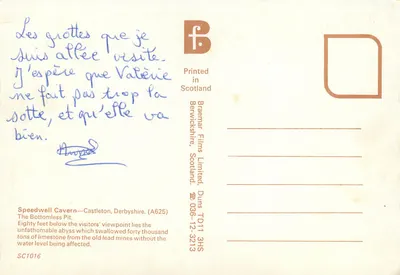 Les grottes que je
suis allée visite.
J'espère que Valérie
ne fait pas trop la
sotte, et qu'elle va
bien.
Speedwell Cavern—Castleton, Derbyshire. (A625)
The Bottomless Pit.
Eighty feet below the visitors' viewpoint lies the
unfathomable abyss which swallowed forty thousand
tons of limestone from the old lead mines without the
water level being affected.
SC1016
bf
Printed
in
Scotland
Braemar Films Limited, Duns TD11 3HS
Berwickshire, Scotland. ☎ 036-12-3213